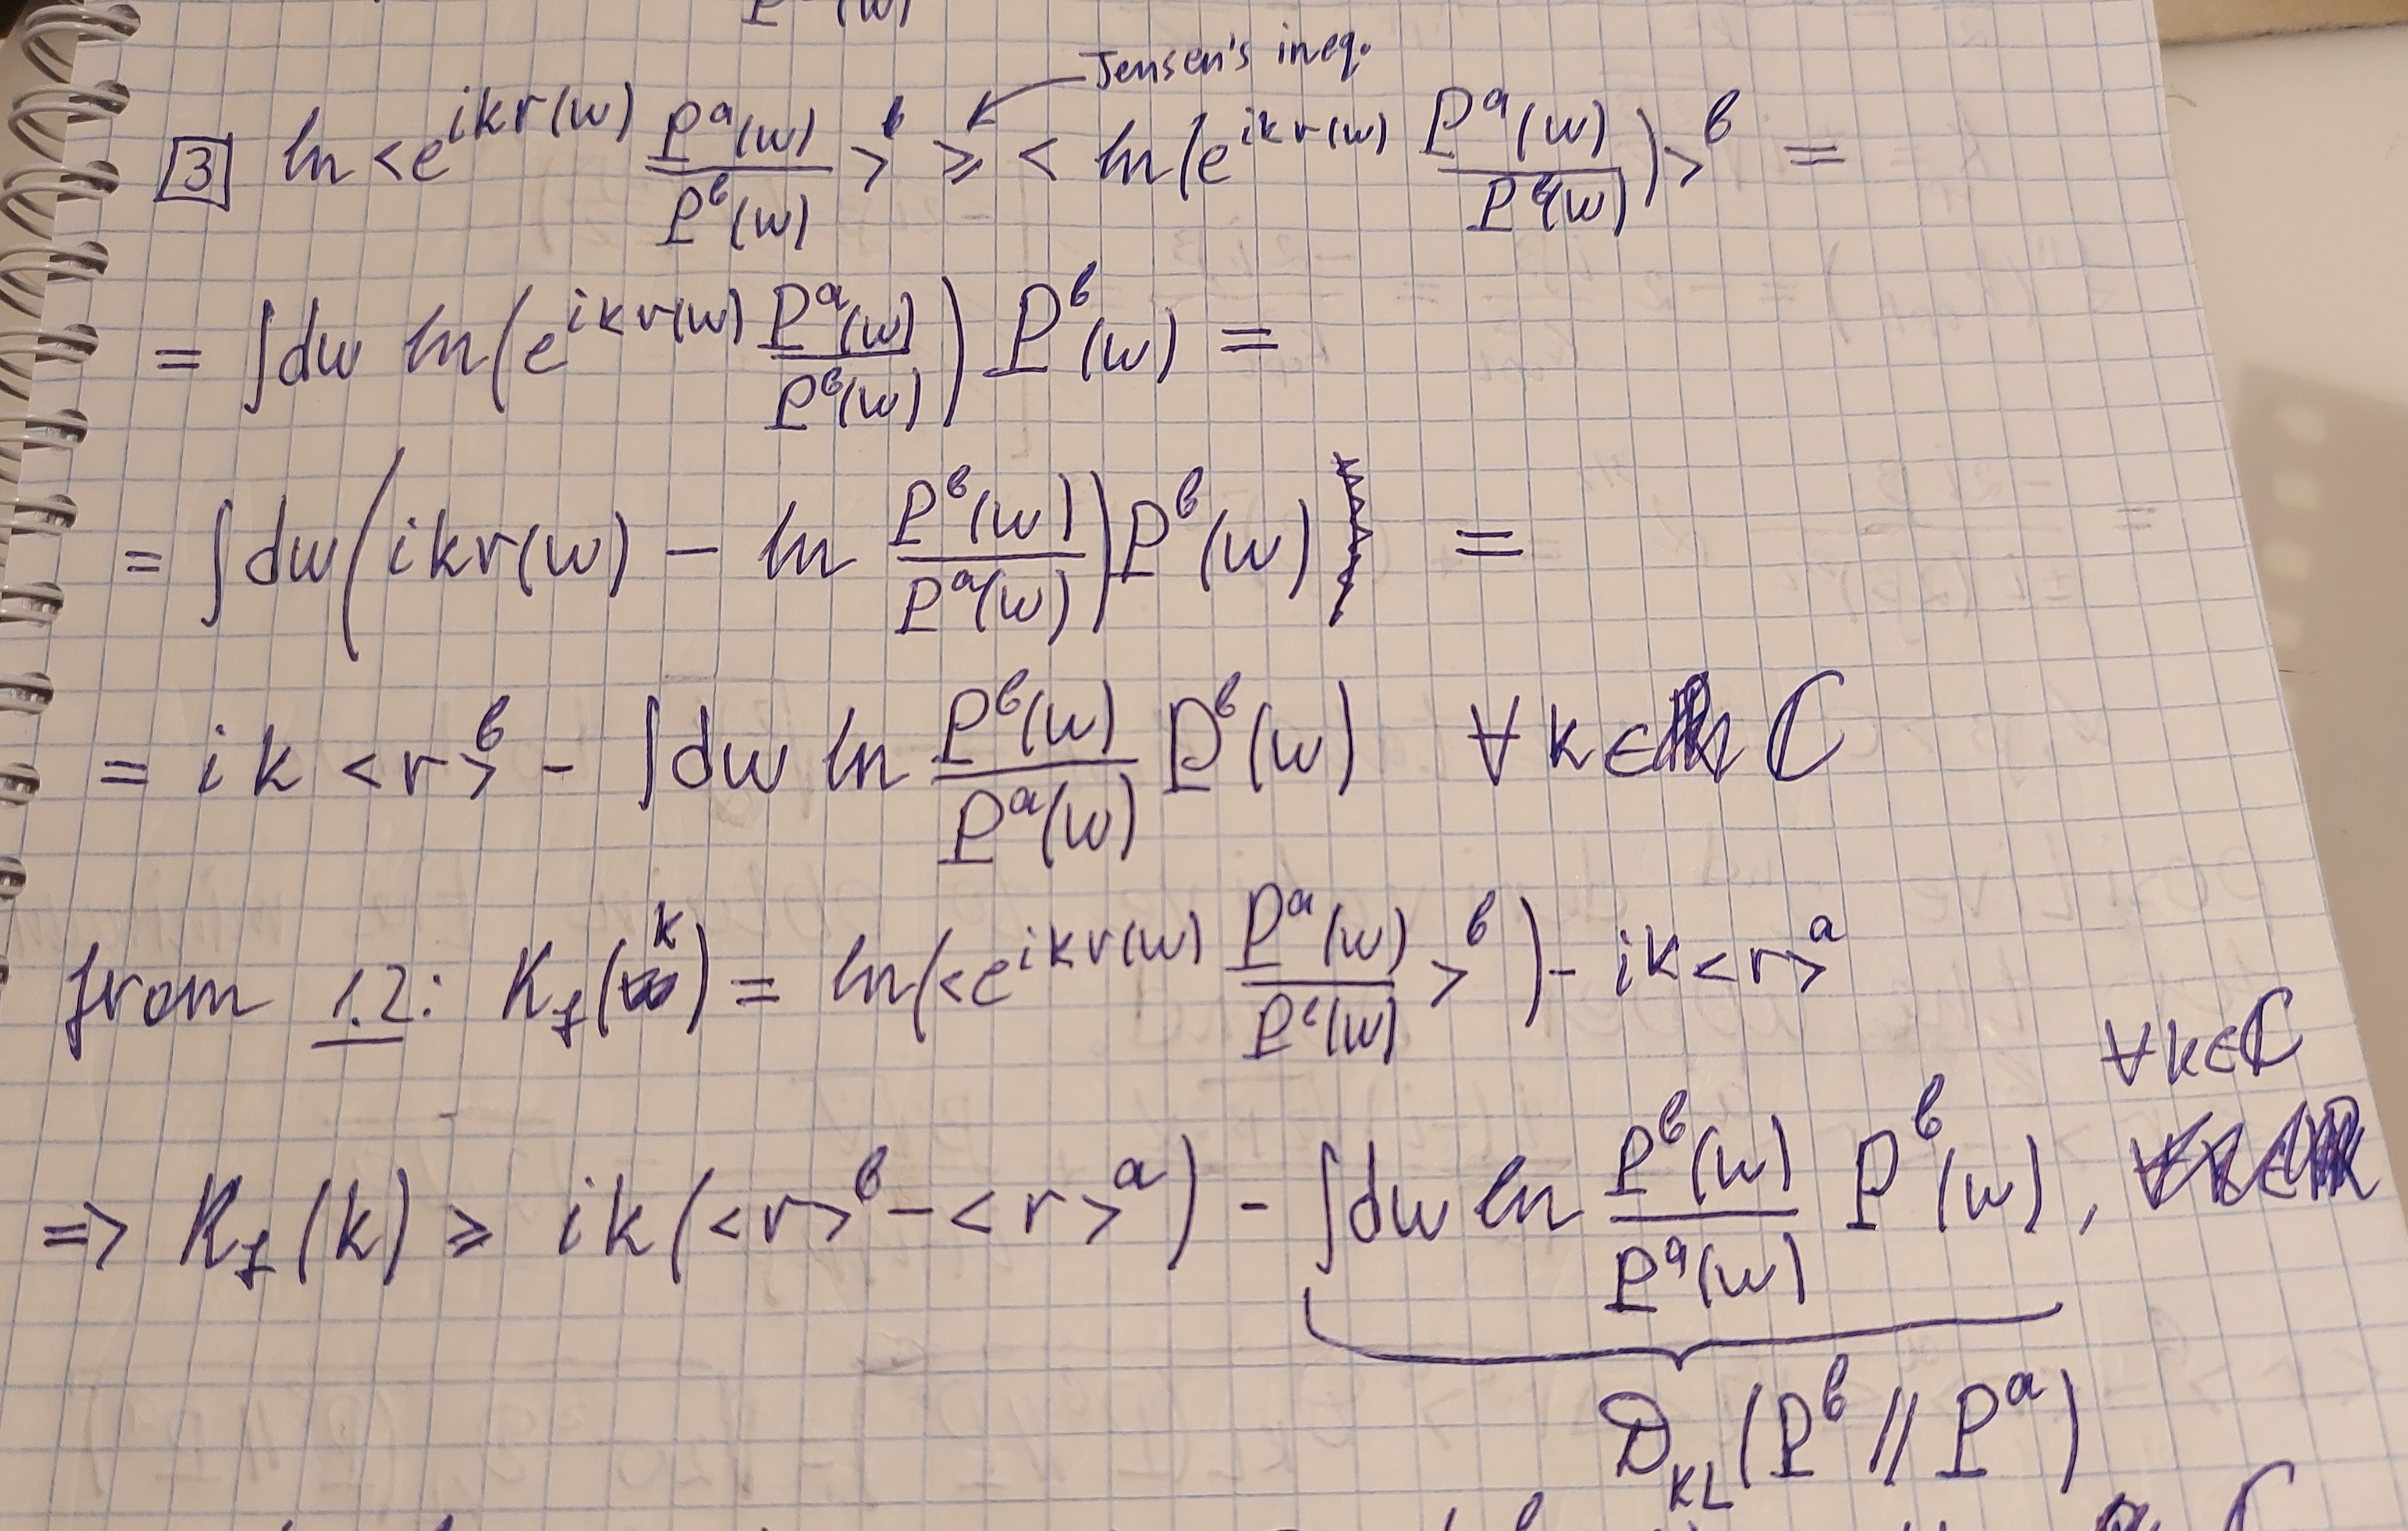 Jensen's ineq.
[3] ln <e^{ikr(w)} P^a(w)/P^b(w)>^b ⩾ < ln(e^{ikr(w)} P^a(w)/P^b(w))>^b =
= ∫dw ln(e^{ikr(w)} P^a(w)/P^b(w)) P^b(w) =
= ∫dw(ikr(w) − ln P^b(w)/P^a(w)) P^b(w) =
= ik <r>^b − ∫dw ln P^b(w)/P^a(w) P^b(w) ∀ k ∈ ℂ
from 1.2: K_f(k) = ln(<e^{ikr(w)} P^a(w)/P^b(w)>^b) − ik<r>^a
∀k∈ℂ
=> K_f(k) ⩾ ik(<r>^b − <r>^a) − ∫dw ln P^b(w)/P^a(w) P^b(w),
D_{KL}(P^b // P^a)